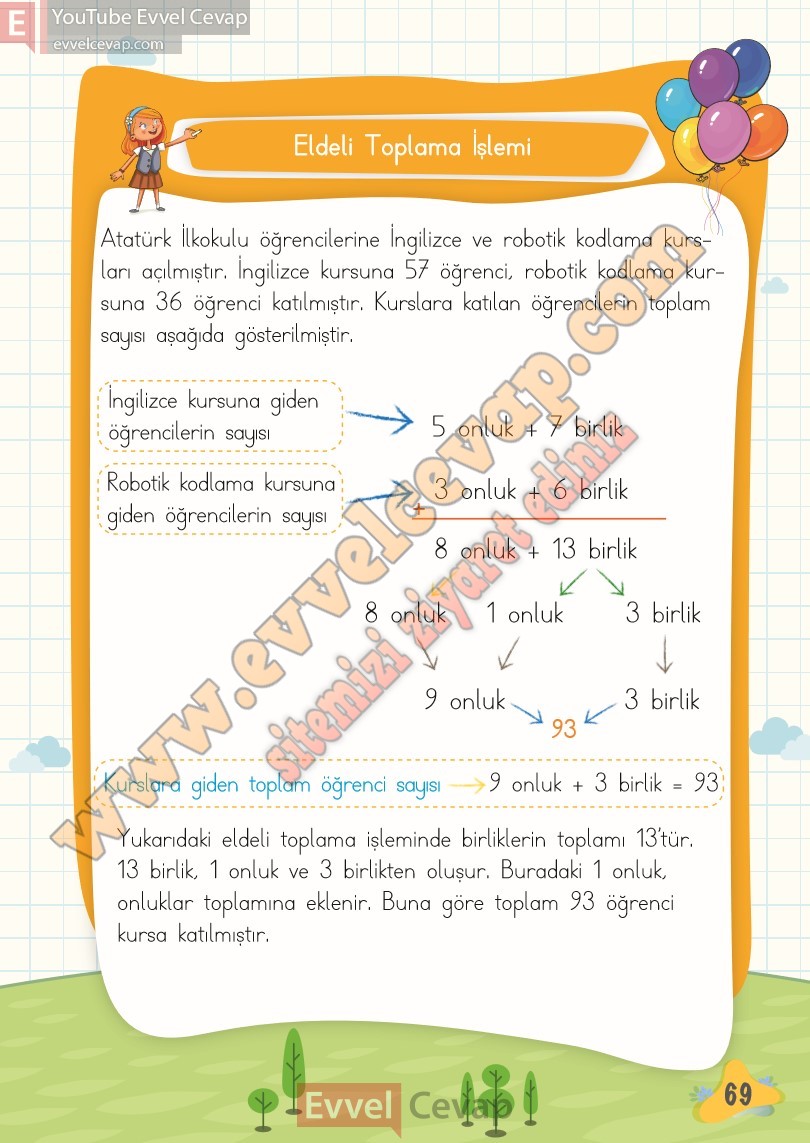 E YouTube Evvel Cevap
evvelcevap.com
Eldeli Toplama İşlemi
Atatürk İlkokulu öğrencilerine İngilizce ve robotik kodlama kurs-
ları açılmıştır. İngilizce kursuna 57 öğrenci, robotik kodlama kur-
suna 36 öğrenci katılmıştır. Kurslara katılan öğrencilerin toplam
sayısı aşağıda gösterilmiştir.
İngilizce kursuna giden
öğrencilerin sayısı
5 onluk + 7 birlik
Robotik kodlama kursuna
giden öğrencilerin sayısı
3 onluk + 6 birlik
+
8 onluk + 13 birlik
8 onluk 1 onluk 3 birlik
9 onluk 3 birlik
93
Kurslara giden toplam öğrenci sayısı 9 onluk + 3 birlik = 93
Yukarıdaki eldeli toplama işleminde birliklerin toplamı 13'tür.
13 birlik, 1 onluk ve 3 birlikten oluşur. Buradaki 1 onluk,
onluklar toplamına eklenir. Buna göre toplam 93 öğrenci
kursa katılmıştır.
www.evvelcevap.com
sitemizi ziyaret ediniz
Evvel Cevap
69